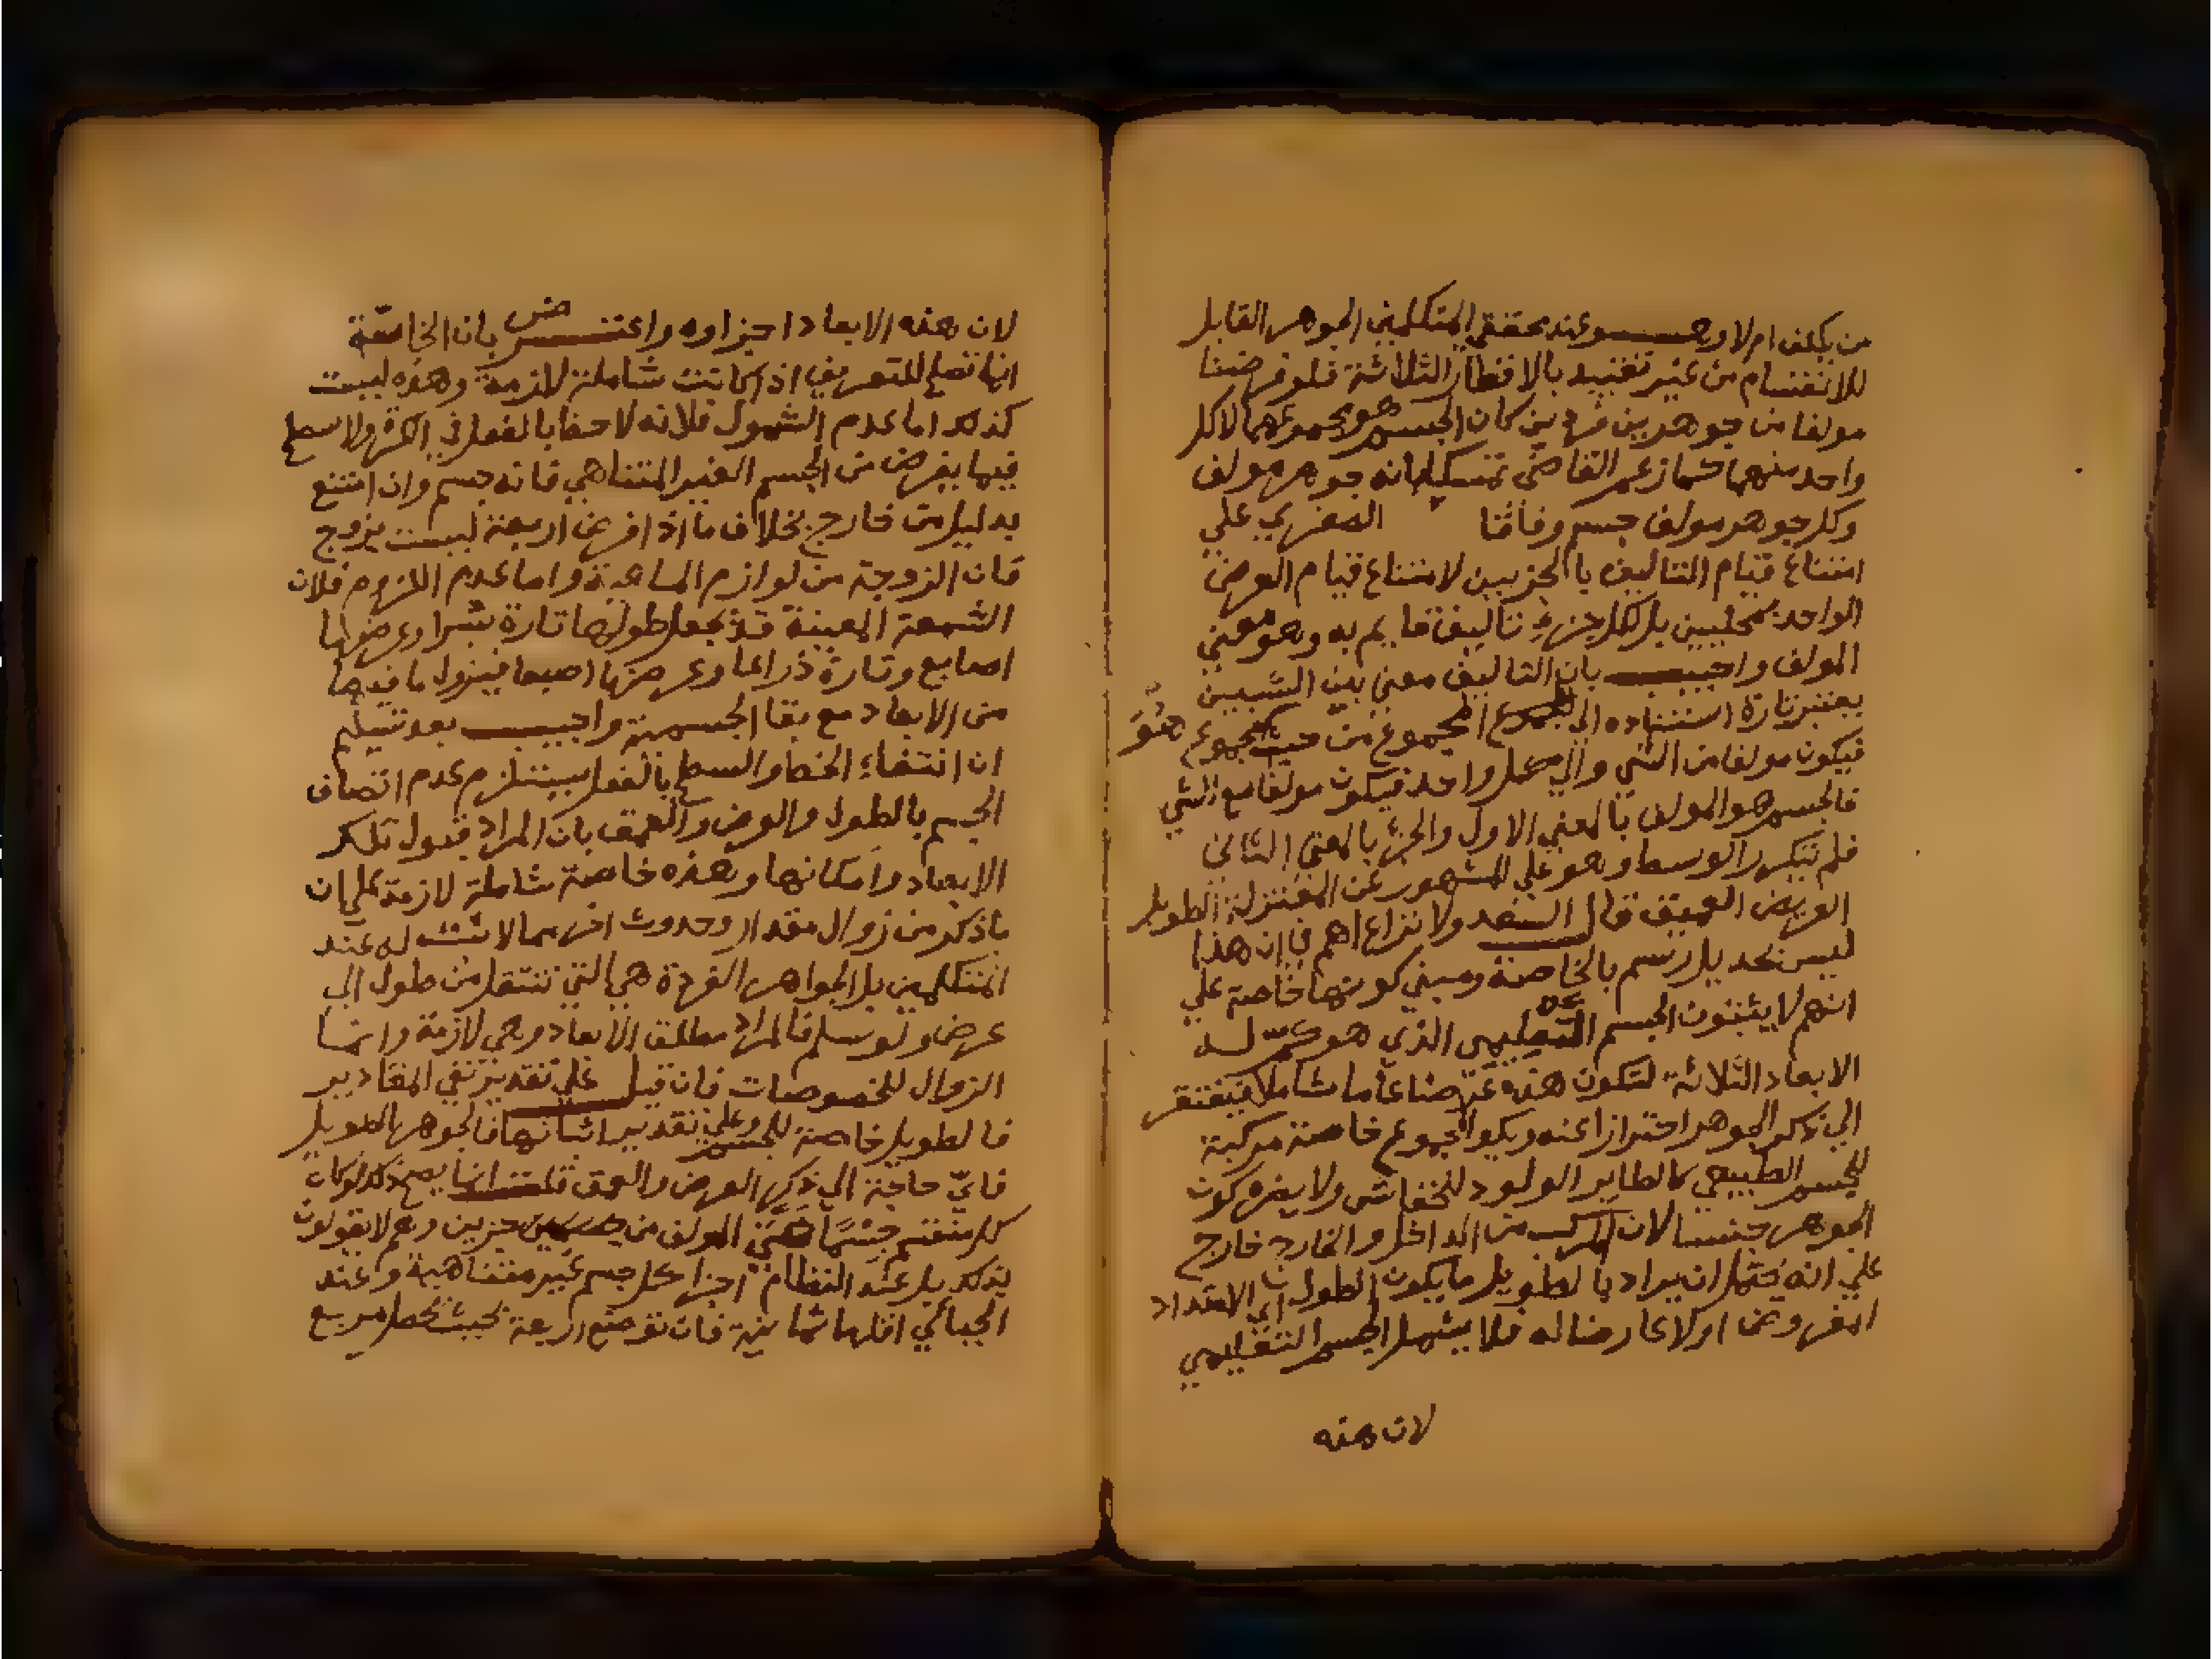 من يكلف ام لا وهو عند محققي المتكلمين الجوهر القابل
للانقسام من غير تقييد بالاقطار الثلاثة فلو فرضنا
مولفا من جوهرين فردين كان الجسم هو مجموعهما لا كل
واحد منهما كما زعم القاضي تمسكا بانه جوهر مولف
وكل جوهر مولف جسم وفاقا الصغري علي
امتناع قيام التاليف بالجزيين لامتناع قيام العرض
الواحد بمحلين بل لكل جزء تاليف قايم به وهو معني
المولف واجيب بان التاليف معني بين الشيين
يعتبر تارة استناده الي المجموع من حيث مجموع هو
فيكون مولفا من الشي والي كل واحد فيكون مولفا مع الشي
فالجسم هو المولف بالمعني الاول والجزء بالمعني الثاني
فلم يتكرر الوسط وهو علي المشهور عن المعتزلة الطويل
العريض العميق قال السعد ولا نزاع لهم في ان هذا
ليس بحد بل رسم بالخاصة ومبني كونها خاصة علي
انهم لا يثبتون الجسم التعليمي الذي هو كم له
الابعاد الثلاثة لتكون هذه عرضا عاما شاملا فيفتقر
الي ذكر الجوهر احترازا عنه ويكون المجموع خاصة مركبة
للجسم الطبيعي كالطاير الولود للخفاش ولا يضره كون
الجوهر جنسا لان المركب من الداخل والخارج خارج
علي انه يحتمل ان يراد بالطويل ما يكون الطول اي الامتداد
المفروض اولا عارضا له فلا يشمل الجسم التعليمي
لان هذه
لان هذه الابعاد اجزاوه واعترض بان الخاصة
انما تصلح للتعريف اذا كانت شاملة لازمة وهذه ليست
كذلك اما عدم الشمول فلانه لا خط بالفعل في الكرة ولا سطح
فيما يفرض من الجسم الغير المتناهي فانه جسم وان امتنع
بدليل من خارج بخلاف ما اذا فرض اربعة ليست بزوج
فان الزوجية من لوازم الماهية واما عدم اللزوم فلان
الشمعة المعينة قد يجعل طولها تارة شبرا وعرضها
اصابع وتارة ذراعا وعرضها اصبعا فيزول ما فيها
من الابعاد مع بقا الجسمية واجيب بعد تسليم
ان انتفاء الخط والسطح بالفعل يستلزم عدم اتصاف
الجسم بالطول والعرض والعمق بان المراد قبول تلك
الابعاد وامكانها وهذه خاصة شاملة لازمة علي ان
ما ذكر من زوال مقدار وحدوث اخر مما لا يثبت له عند
المتكلمين بل الجواهر الفردة هي التي تنتقل من طول الي
عرض ولو سلم فالمراد مطلق الابعاد وهي لازمة وانما
الزوال للخصوصات فان قيل علي تقدير نفي المقادير
فالطويل خاصة للجسم وعلي تقدير اثباتها فالجوهر الطويل
فاي حاجة الي ذكر العرض والعمق قلت انما يصح ذلك لو كان
كل منقسم جسما المولف من جزين وهم لا يقولون
بذلك بل عند النظام اجزا كل جسم غير متناهية وعند
الجبائي اقلها ثمانية فان توضع اربعة بحيث يحصل مربع